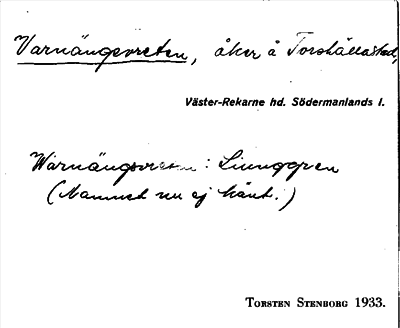 Varnängsvreten, åker å Torshälla stad,
Väster-Rekarne hd. Södermanlands l.
Warnängsvreten: Liunggren
(Namnet nu ej känt.)
TORSTEN STENBORG 1933.